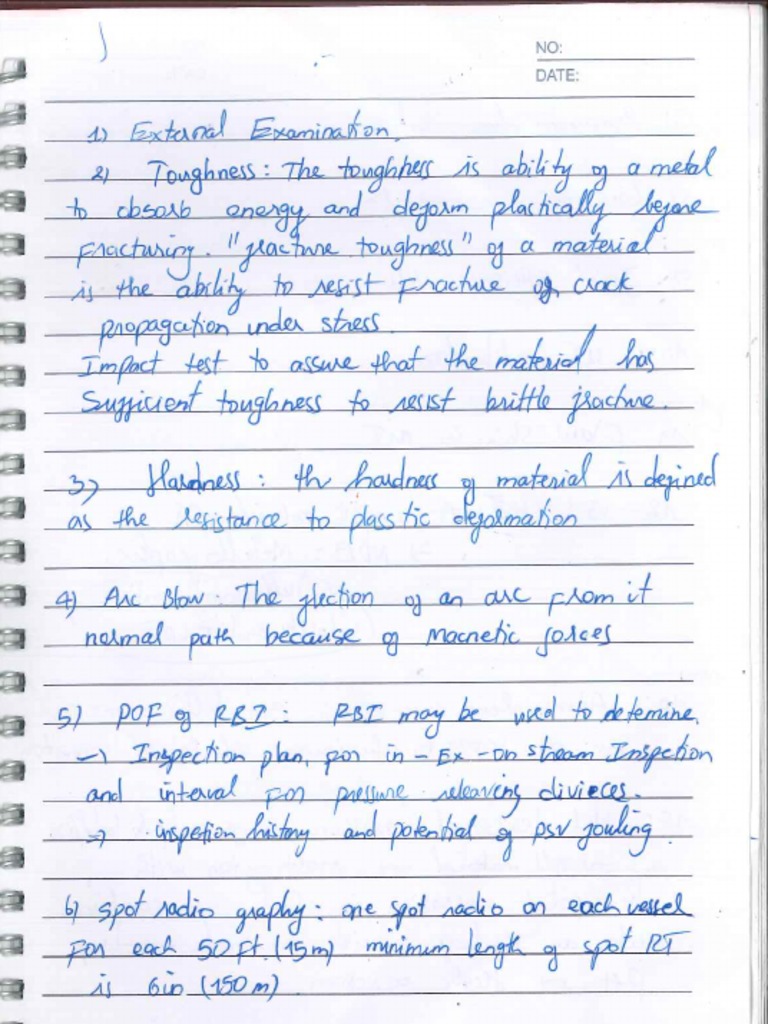 NO:
DATE:
1) External Examination:
2) Toughness: The toughness is ability of a metal
to absorb energy and deform plastically before
fracturing. "fracture toughness" of a material
is the ability to resist fracture of crack
propagation under stress.
Impact test to assure that the material has
Sufficient toughness to resist brittle fracture.
3) Hardness: th hardness of material is defined
as the resistance to plasstic deformation
4) Arc Blow The flection of an arc from it
normal path because of Macnetic forces
5) POF of RBI: RBI may be used to detemine.
→ Inspection plan, for in - Ex - on stream Inspection
and interval for pressure releaving divieces.
→ inspetion history and potential of psv fouling
6) spot radio graphy: one spot radio on each vessel
For each 50 Ft. (15m) minimum length of spot RT
is 6in (150 m)